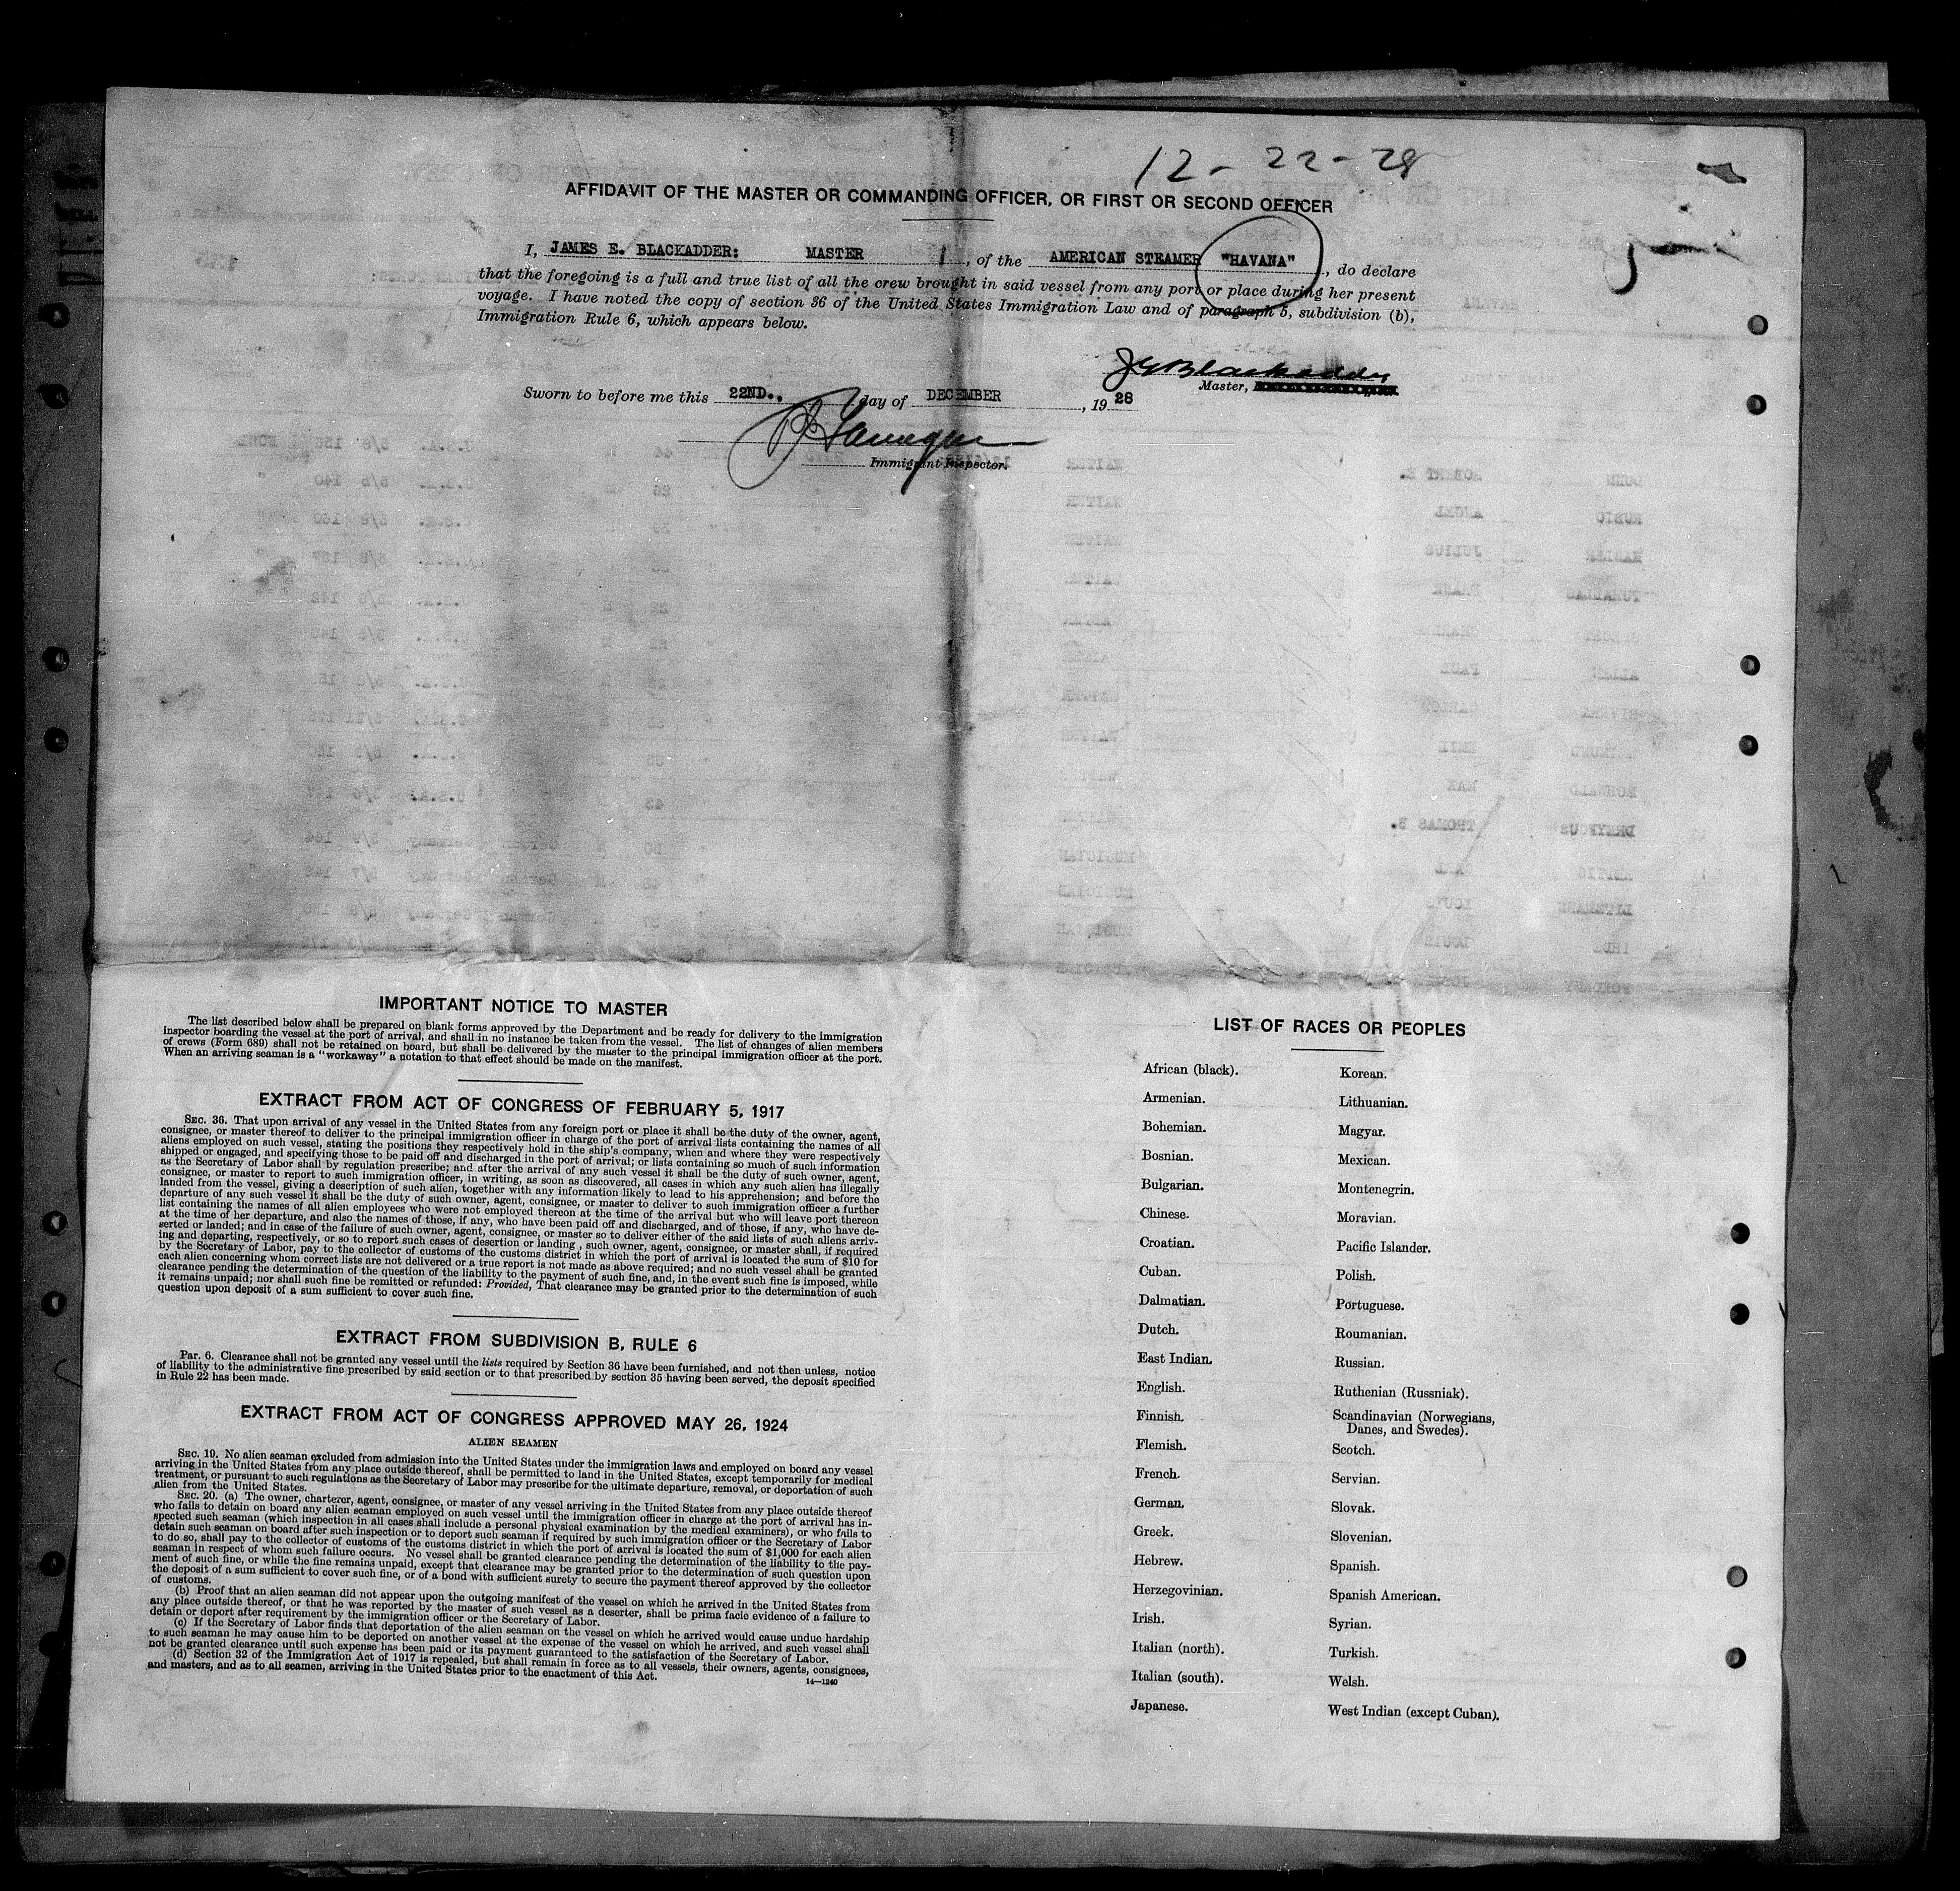 12-22-28
AFFIDAVIT OF THE MASTER OR COMMANDING OFFICER, OR FIRST OR SECOND OFFICER
I, JAMES E. BLACKADDER: MASTER , of the AMERICAN STEAMER "HAVANA" , do declare
that the foregoing is a full and true list of all the crew brought in said vessel from any port or place during her present
voyage. I have noted the copy of section 36 of the United States Immigration Law and of paragraph 5, subdivision (b),
Immigration Rule 6, which appears below.
J E Blackadder
Master,
Sworn to before me this 22ND., day of DECEMBER , 1928
Immigrant Inspector.
IMPORTANT NOTICE TO MASTER
The list described below shall be prepared on blank forms approved by the Department and be ready for delivery to the immigration
inspector boarding the vessel at the port of arrival, and shall in no instance be taken from the vessel. The list of changes of alien members
of crews (Form 689) shall not be retained on board, but shall be delivered by the master to the principal immigration officer at the port.
When an arriving seaman is a "workaway" a notation to that effect should be made on the manifest.
EXTRACT FROM ACT OF CONGRESS OF FEBRUARY 5, 1917
SEC. 36. That upon arrival of any vessel in the United States from any foreign port or place it shall be the duty of the owner, agent,
consignee, or master thereof to deliver to the principal immigration officer in charge of the port of arrival lists containing the names of all
aliens employed on such vessel, stating the positions they respectively hold in the ship's company, when and where they were respectively
shipped or engaged, and specifying those to be paid off and discharged in the port of arrival; or lists containing so much of such information
as the Secretary of Labor shall by regulation prescribe; and after the arrival of any such vessel it shall be the duty of such owner, agent,
consignee, or master to report to such immigration officer, in writing, as soon as discovered, all cases in which any such alien has illegally
landed from the vessel, giving a description of such alien, together with any information likely to lead to his apprehension; and before the
departure of any such vessel it shall be the duty of such owner, agent, consignee, or master to deliver to such immigration officer a further
list containing the names of all alien employees who were not employed thereon at the time of the arrival but who will leave port thereon
at the time of her departure, and also the names of those, if any, who have been paid off and discharged, and of those, if any, who have de-
serted or landed; and in case of the failure of such owner, agent, consignee, or master so to deliver either of the said lists of such aliens arriv-
ing and departing, respectively, or so to report such cases of desertion or landing , such owner, agent, consignee, or master shall, if required
by the Secretary of Labor, pay to the collector of customs of the customs district in which the port of arrival is located the sum of $10 for
each alien concerning whom correct lists are not delivered or a true report is not made as above required; and no such vessel shall be granted
clearance pending the determination of the question of the liability to the payment of such fine, and, in the event such fine is imposed, while
it remains unpaid; nor shall such fine be remitted or refunded: Provided, That clearance may be granted prior to the determination of such
question upon deposit of a sum sufficient to cover such fine.
EXTRACT FROM SUBDIVISION B, RULE 6
Par. 6. Clearance shall not be granted any vessel until the lists required by Section 36 have been furnished, and not then unless, notice
of liability to the administrative fine prescribed by said section or to that prescribed by section 35 having been served, the deposit specified
in Rule 22 has been made.
EXTRACT FROM ACT OF CONGRESS APPROVED MAY 26, 1924
ALIEN SEAMEN
SEC. 19. No alien seaman excluded from admission into the United States under the immigration laws and employed on board any vessel
arriving in the United States from any place outside thereof, shall be permitted to land in the United States, except temporarily for medical
treatment, or pursuant to such regulations as the Secretary of Labor may prescribe for the ultimate departure, removal, or deportation of such
alien from the United States.
SEC. 20. (a) The owner, charterer, agent, consignee, or master of any vessel arriving in the United States from any place outside thereof
who fails to detain on board any alien seaman employed on such vessel until the immigration officer in charge at the port of arrival has in-
spected such seaman (which inspection in all cases shall include a personal physical examination by the medical examiners), or who fails to
detain such seaman on board after such inspection or to deport such seaman if required by such immigration officer or the Secretary of Labor
to do so, shall pay to the collector of customs of the customs district in which the port of arrival is located the sum of $1,000 for each alien
seaman in respect of whom such failure occurs. No vessel shall be granted clearance pending the determination of the liability to the pay-
ment of such fine, or while the fine remains unpaid, except that clearance may be granted prior to the determination of such question upon
the deposit of a sum sufficient to cover such fine, or of a bond with sufficient surety to secure the payment thereof approved by the collector
of customs.
(b) Proof that an alien seaman did not appear upon the outgoing manifest of the vessel on which he arrived in the United States from
any place outside thereof, or that he was reported by the master of such vessel as a deserter, shall be prima facie evidence of a failure to
detain or deport after requirement by the immigration officer or the Secretary of Labor.
(c) If the Secretary of Labor finds that deportation of the alien seaman on the vessel on which he arrived would cause undue hardship
to such seaman he may cause him to be deported on another vessel at the expense of the vessel on which he arrived, and such vessel shall
not be granted clearance until such expense has been paid or its payment guaranteed to the satisfaction of the Secretary of Labor.
(d) Section 32 of the Immigration Act of 1917 is repealed, but shall remain in force as to all vessels, their owners, agents, consignees,
and masters, and as to all seamen, arriving in the United States prior to the enactment of this Act.
14—1240
LIST OF RACES OR PEOPLES
African (black).
Armenian.
Bohemian.
Bosnian.
Bulgarian.
Chinese.
Croatian.
Cuban.
Dalmatian.
Dutch.
East Indian.
English.
Finnish.
Flemish.
French.
German.
Greek.
Hebrew.
Herzegovinian.
Irish.
Italian (north).
Italian (south).
Japanese.
Korean.
Lithuanian.
Magyar.
Mexican.
Montenegrin.
Moravian.
Pacific Islander.
Polish.
Portuguese.
Roumanian.
Russian.
Ruthenian (Russniak).
Scandinavian (Norwegians,
Danes, and Swedes).
Scotch.
Servian.
Slovak.
Slovenian.
Spanish.
Spanish American.
Syrian.
Turkish.
Welsh.
West Indian (except Cuban).